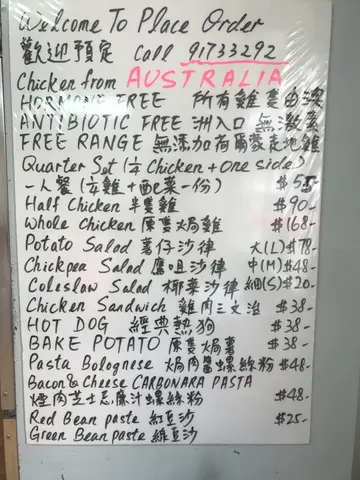 Welcome To Place Order
歡迎預定 Call 91733292
Chicken from AUSTRALIA
HORMONE FREE 所有雞隻由澳
ANTIBIOTIC FREE 洲入口 無激素
FREE RANGE 無添加荷爾蒙走地雞
Quarter Set (¼ Chicken + One side)
一人餐 (¼雞 + 配菜一份) $55-
Half Chicken 半隻雞 $90-
Whole Chicken 原隻焗雞 $168-
Potato Salad 薯仔沙律 大(L)$78-
Chickpea Salad 鷹咀沙律 中(M)$48-
Coleslaw Salad 椰菜沙律 細(S)$20-
Chicken Sandwich 雞肉三文治 $38-
HOT DOG 經典熱狗 $38-
BAKE POTATO 原隻焗薯 $38-
Pasta Bolognese 焗肉醬螺絲粉 $48-
Bacon & Cheese CARBONARA PASTA
煙肉芝士忌廉汁螺絲粉 $48-
Red Bean paste 紅豆沙 $25-
Green Bean paste 綠豆沙